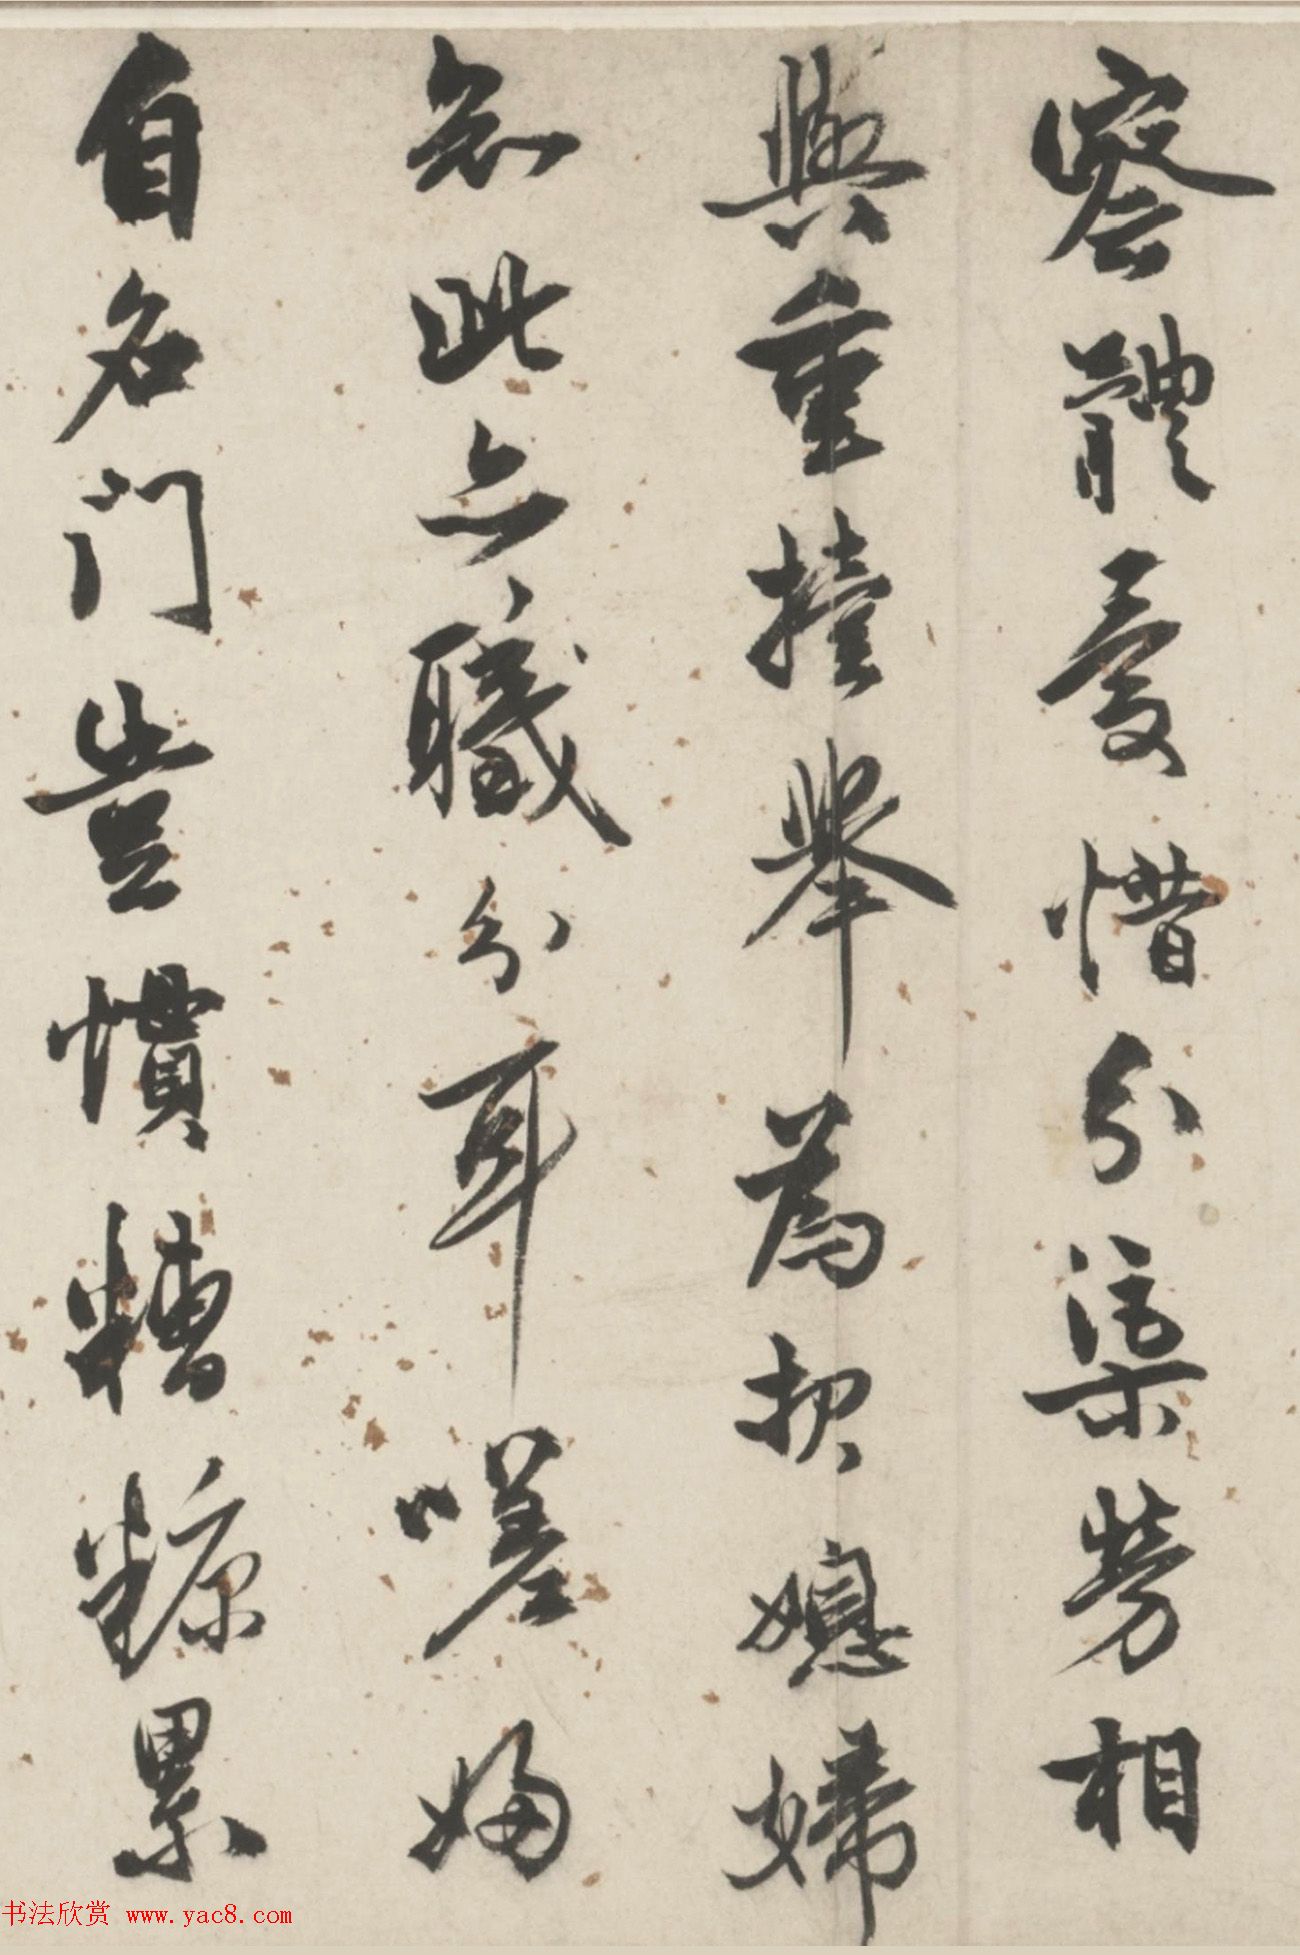 察體愛惜分渠勞相
與重擡舉為執媳婦
知此亦職分耳嗟婦
自名門豈慣糟糠累
书法欣赏 www.yac8.com